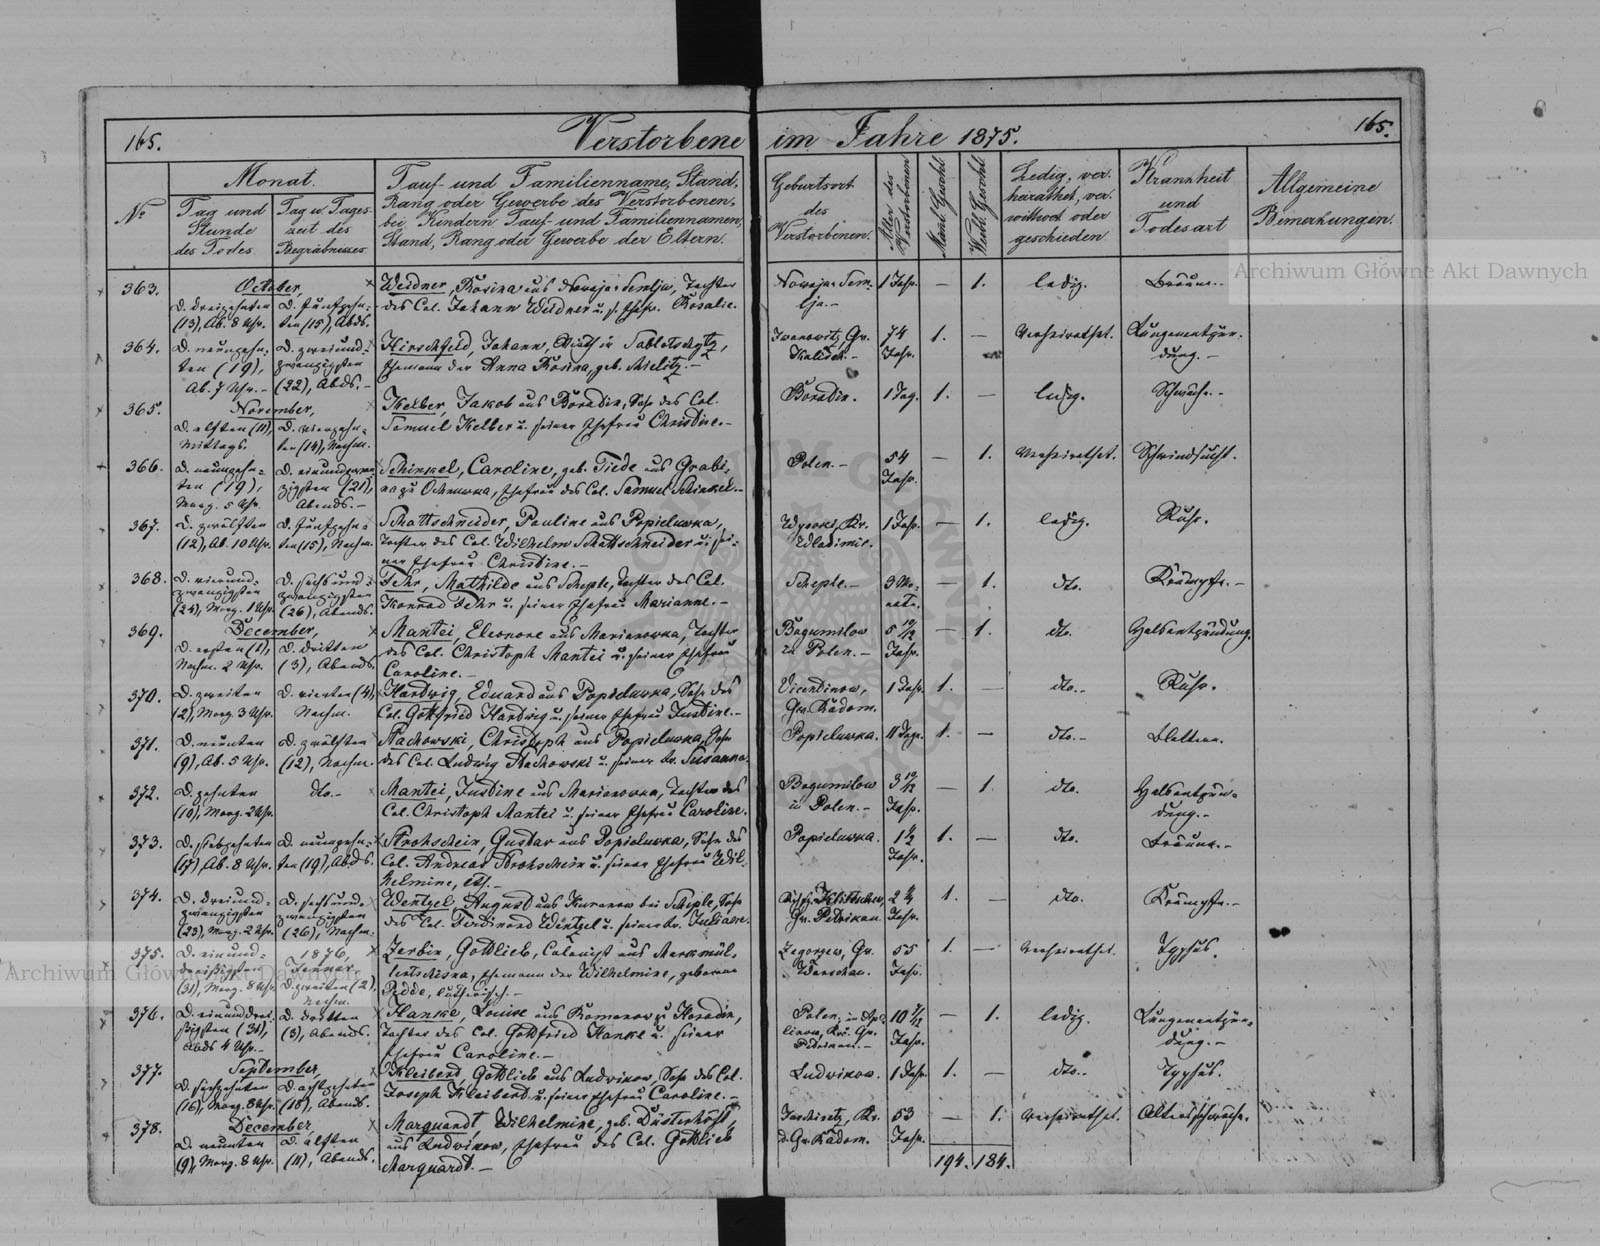 165.
Verstorbene im Jahre 1875.
165.
№
Monat.
Tag und Stunde des Todes.
Tag u. Tageszeit des Begräbnisses.
Tauf- und Familienname, Stand,
Rang oder Gewerbe des Verstorbenen,
bei Kindern Tauf- und Familiennamen,
Stand, Rang oder Gewerbe der Eltern.
Geburtsort
des
Verstorbenen.
Alter des Verstorbenen
Männl. Geschl.
Weibl. Geschl.
Ledig, ver-
heirathet, ver-
wittwet oder
geschieden.
Krankheit
und
Todesart
Allgemeine
Bemerkungen.
Archiwum Główne Akt Dawnych
363.
October,
D. dreizehnten
(13), Ab. 8 Uhr.
D. Fünfzehn-
ten (15), Abds.
Weidner, Rosina aus Nowaja-Semlja, Tochter
des Col. Johann Weidner u. s. Ehefr. Rosalie.
Nowaja-Sem-
lja.-
1 Jahr.
—
1.
ledig.
Bräune.-
364.
D. neunzehn-
ten (19),
Ab. 7 Uhr.-
D. zweiund-
zwanzigsten
(22), Abds.-
Hirschfeld, Johann, Wirth in
Ehemann der Anna Rosina, geb. Mielitz.-
Iwanowitz, Gv.
Kalisch.-
74
Jahr.
1.
—
Verheirathet.
Lungenentzün-
dung.-
365.
November,
D. elften (11),
Mittags.
D. vierzehn-
ten (14), Nachm.
Kelber, Jakob aus Boradin, Sohn des Col.
Samuel Kelber u. seiner Ehefrau Christine.-
Boradin.
1 Tag.
1.
—
ledig.
Schwäche.-
366.
D. neunzehn-
ten (19),
Morg. 5 Uhr.
D. einundzwan-
zigsten (21),
Abends.-
Schinkel, Caroline, geb. Tiede aus Grabi,
Ehefrau des Col. Samuel Schinkel.-
Polen.-
54
Jahr.
—
1.
Verheirathet.
Schwindsucht.
367.
D. zwölften
(12), Ab. 10 Uhr.
D. Fünfzehn-
ten (15), Nachm.
Schattschneider, Pauline aus Popieluwka,
Tochter des Col. Wilhelm Schattschneider u. sei-
ner Ehefrau Christine.-
Wysocki, Kr.
Wladimir.
1 Jahr.
—
1.
ledig.
Ruhr.
368.
D. vierund-
zwanzigsten
(24), Morg. 1 Uhr.
D. sechsund-
zwanzigsten
(26), Abends.
Fehr, Mathilde aus Scheple, Tochter des Col.
Konrad Fehr u. seiner Ehefrau Marianne.-
Scheple.-
3 Mo-
nate.
—
1.
dto.
Krämpfe.-
369.
December,
D. ersten (1),
Nachm. 2 Uhr.
D. dritten
(3), Abends.
Mantei, Eleonore aus Marianowka, Tochter
des Col. Christoph Mantei u. seiner Ehefrau
Caroline.-
Bogumilow
in Polen.-
5 10/12
Jahr.
—
1.
dto.
Halsentzündung.
370.
D. zweiten
(2), Morg. 3 Uhr.
D. vierten (4),
Nachm.
Hardwig, Eduard aus Popieluwka, Sohn des
Col. Gottfried Hardwig u. seiner Ehefrau Justine.-
Vicentinow,
Gv. Radom.
1 Jahr.
1.
—
dto.-
Ruhr.
371.
D. neunten
(9), Ab. 5 Uhr.
D. zwölften
(12), Nachm.
Rachowski, Christoph aus Popieluwka, Sohn
des Col. Ludwig Rachowski u. seiner Ehefr. Susanna.
Popieluwka.
11 Tage.
1.
—
dto.-
Blattern.
372.
D. zehnten
(10), Morg. 2 Uhr.
dto.-
Mantei, Justine aus Marianowka, Tochter des
Col. Christoph Mantei u. seiner Ehefrau Caroline.
Bogumilow
in Polen.-
3 10/12
Jahr.
—
1
dto.
Halsentzün-
dung.-
373.
D. siebzehnten
(17), Ab. 8 Uhr.
D. neunzehn-
ten (19), Abds.
Strohschein, Gustav aus Popieluwka, Sohn des
Col. Andreas Strohschein u. seiner Ehefrau Wil-
helmine,
Popieluwka.
1½
Jahr.
1.
—
dto.
Bräune.-
374.
D. dreiund-
zwanzigsten
(23), Morg. 2 Uhr.
D. sechsund-
zwanzigsten
(26), Nachm.
Wentzel, August aus Kuranow bei Scheple, Sohn
des Col. Ferdinand Wentzel u. seiner Ehefr. Juliane.
Gv. Petrikau.
Jahr.
1.
—
dto.
Krämpfe.-
375.
D. einund-
dreißigsten
(31), Morg. 8 Uhr.
1876,
Jenner,
D. zweiten (2),
Nachm.
Zerbin, Gottlieb, Colonist aus
Ehemann der Wilhelmine, geborene
Redde, lutherisch.-
Zegorzew, Gv.
Warschau.
55
Jahr.
1.
—
Verheirathet.
Typhus.
Archiwum Główne Akt Dawnych
376.
D. einunddrei-
ßigsten (31),
Abds 4 Uhr.-
D. dritten
(3), Abends.
Hanke, Louise aus Romanow Horodin,
Tochter des Col. Gottfried Hanke u. seiner
Ehefrau Caroline.-
Polen,
Gv.
Petrikau.-
10
Jahr.
—
1.
ledig.
Lungenentzün-
dung.-
377.
September,
D. sechzehnten
(16), Morg. 8 Uhr.
D. achtzehnten
(18), Abends.
Kleiberd, Gottlieb aus Ludwikow, Sohn des Col.
Joseph Kleiberd u. seiner Ehefrau Caroline.-
Ludwikow.
1 Jahr.
1.
—
dto.-
Typhus.
378.
December,
D. neunten
(9), Morg. 8 Uhr.
D. elften
(11), Abends.
Marquardt, Wilhelmine, geb. Düsterhöft,
aus Ludwikow, Ehefrau des Col. Gottlieb
Marquardt.-
Gv. Radom.
53
Jahr.
—
1.
Verheirathet.
Altersschwäche.
194. 184.